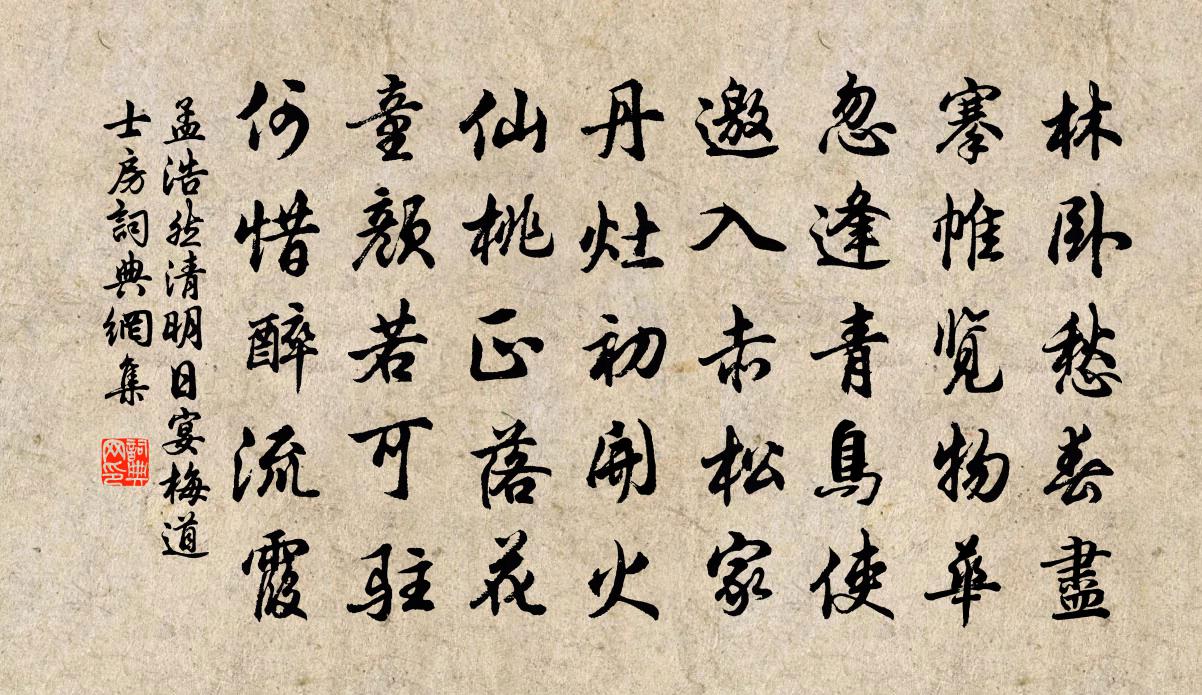 林卧愁春盡
搴帷覽物華
忽逢青鳥使
邀入赤松家
丹灶初開火
仙桃正落花
童顏若可駐
何惜醉流霞
孟浩然清明日宴梅道
士房詞典網集
詞典
网印